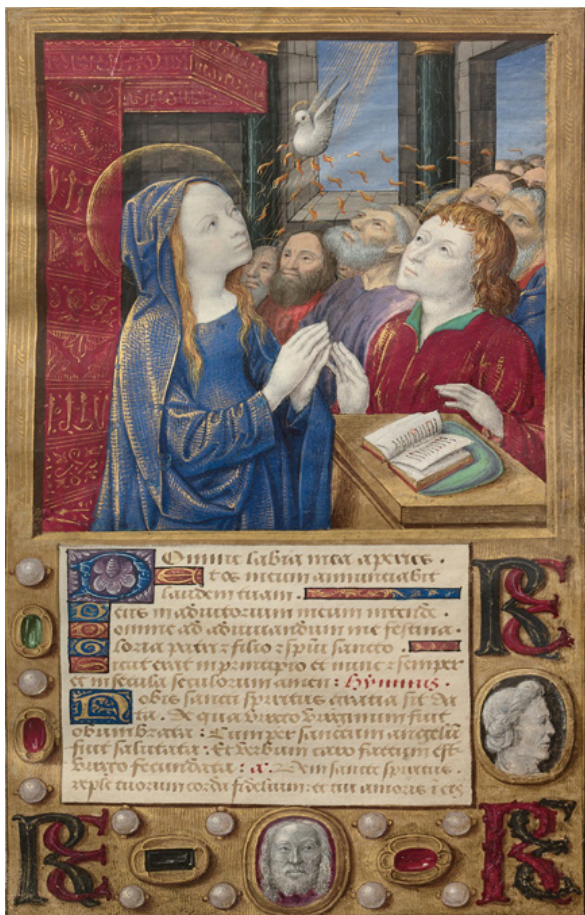 Domine labia mea aperies.
Et os meum annunciabit
laudem tuam.
Deus in adiutorium meum intende.
Domine ad adiuvandum me festina.
Gloria patri ⁊ filio ⁊ spũi sancto.
Sicut erat in principio et nunc ⁊ semper
et in secula seculorum amen : Hymnus.
Nobis sancti spiritus gratia sit da
ta. De qua virgo virginum fuit
obumbrata : Cum per sanctum angelũ
fuit salutata : Et verbum caro factum est
virgo fecundata : a. Veni sancte spiritus.
reple tuorum corda fidelium : et tui amoris ĩ eis